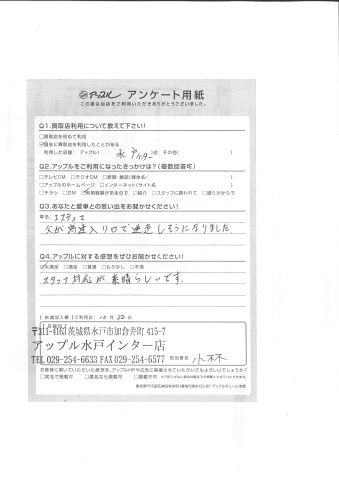 アップル アンケート用紙
この度は当店をご利用いただきありがとうございました。
Q1.買取店利用について教えて下さい!
□買取店を初めて利用
☑過去に買取店を利用したことがある
利用した店舗: アップル( 水戸インター )店 その他( )
Q2.アップルをご利用になったきっかけは?(複数回答可)
□テレビCM □ラジオCM □新聞・雑誌(媒体名 )
□アップルのホームページ □インターネット(サイト名 )
□チラシ □DM ☑利用経験があるので □紹介 □スタッフに誘われて □通りがかりで
Q3.あなたと愛車との思い出をお聞かせください!
車名: エスティマ
父が高速入り口で逆走しそうになりました
Q4.アップルに対する感想をぜひお聞かせください!
☑大満足 □満足 □普通 □もう少し □不満
スタッフ対応が素晴らしいです。
【お客様記入欄】ご利用日: 10月 22日
〒311-4163茨城県水戸市加倉井町 415-7
アップル水戸インター店
TEL 029-254-6633 FAX 029-254-6577
担当者名 小林
お客様に書いていただいた感想を、アップルHPや広告に掲載させていただいてもよろしいでしょうか?
□実名で掲載可 □匿名なら掲載可 □掲載不可